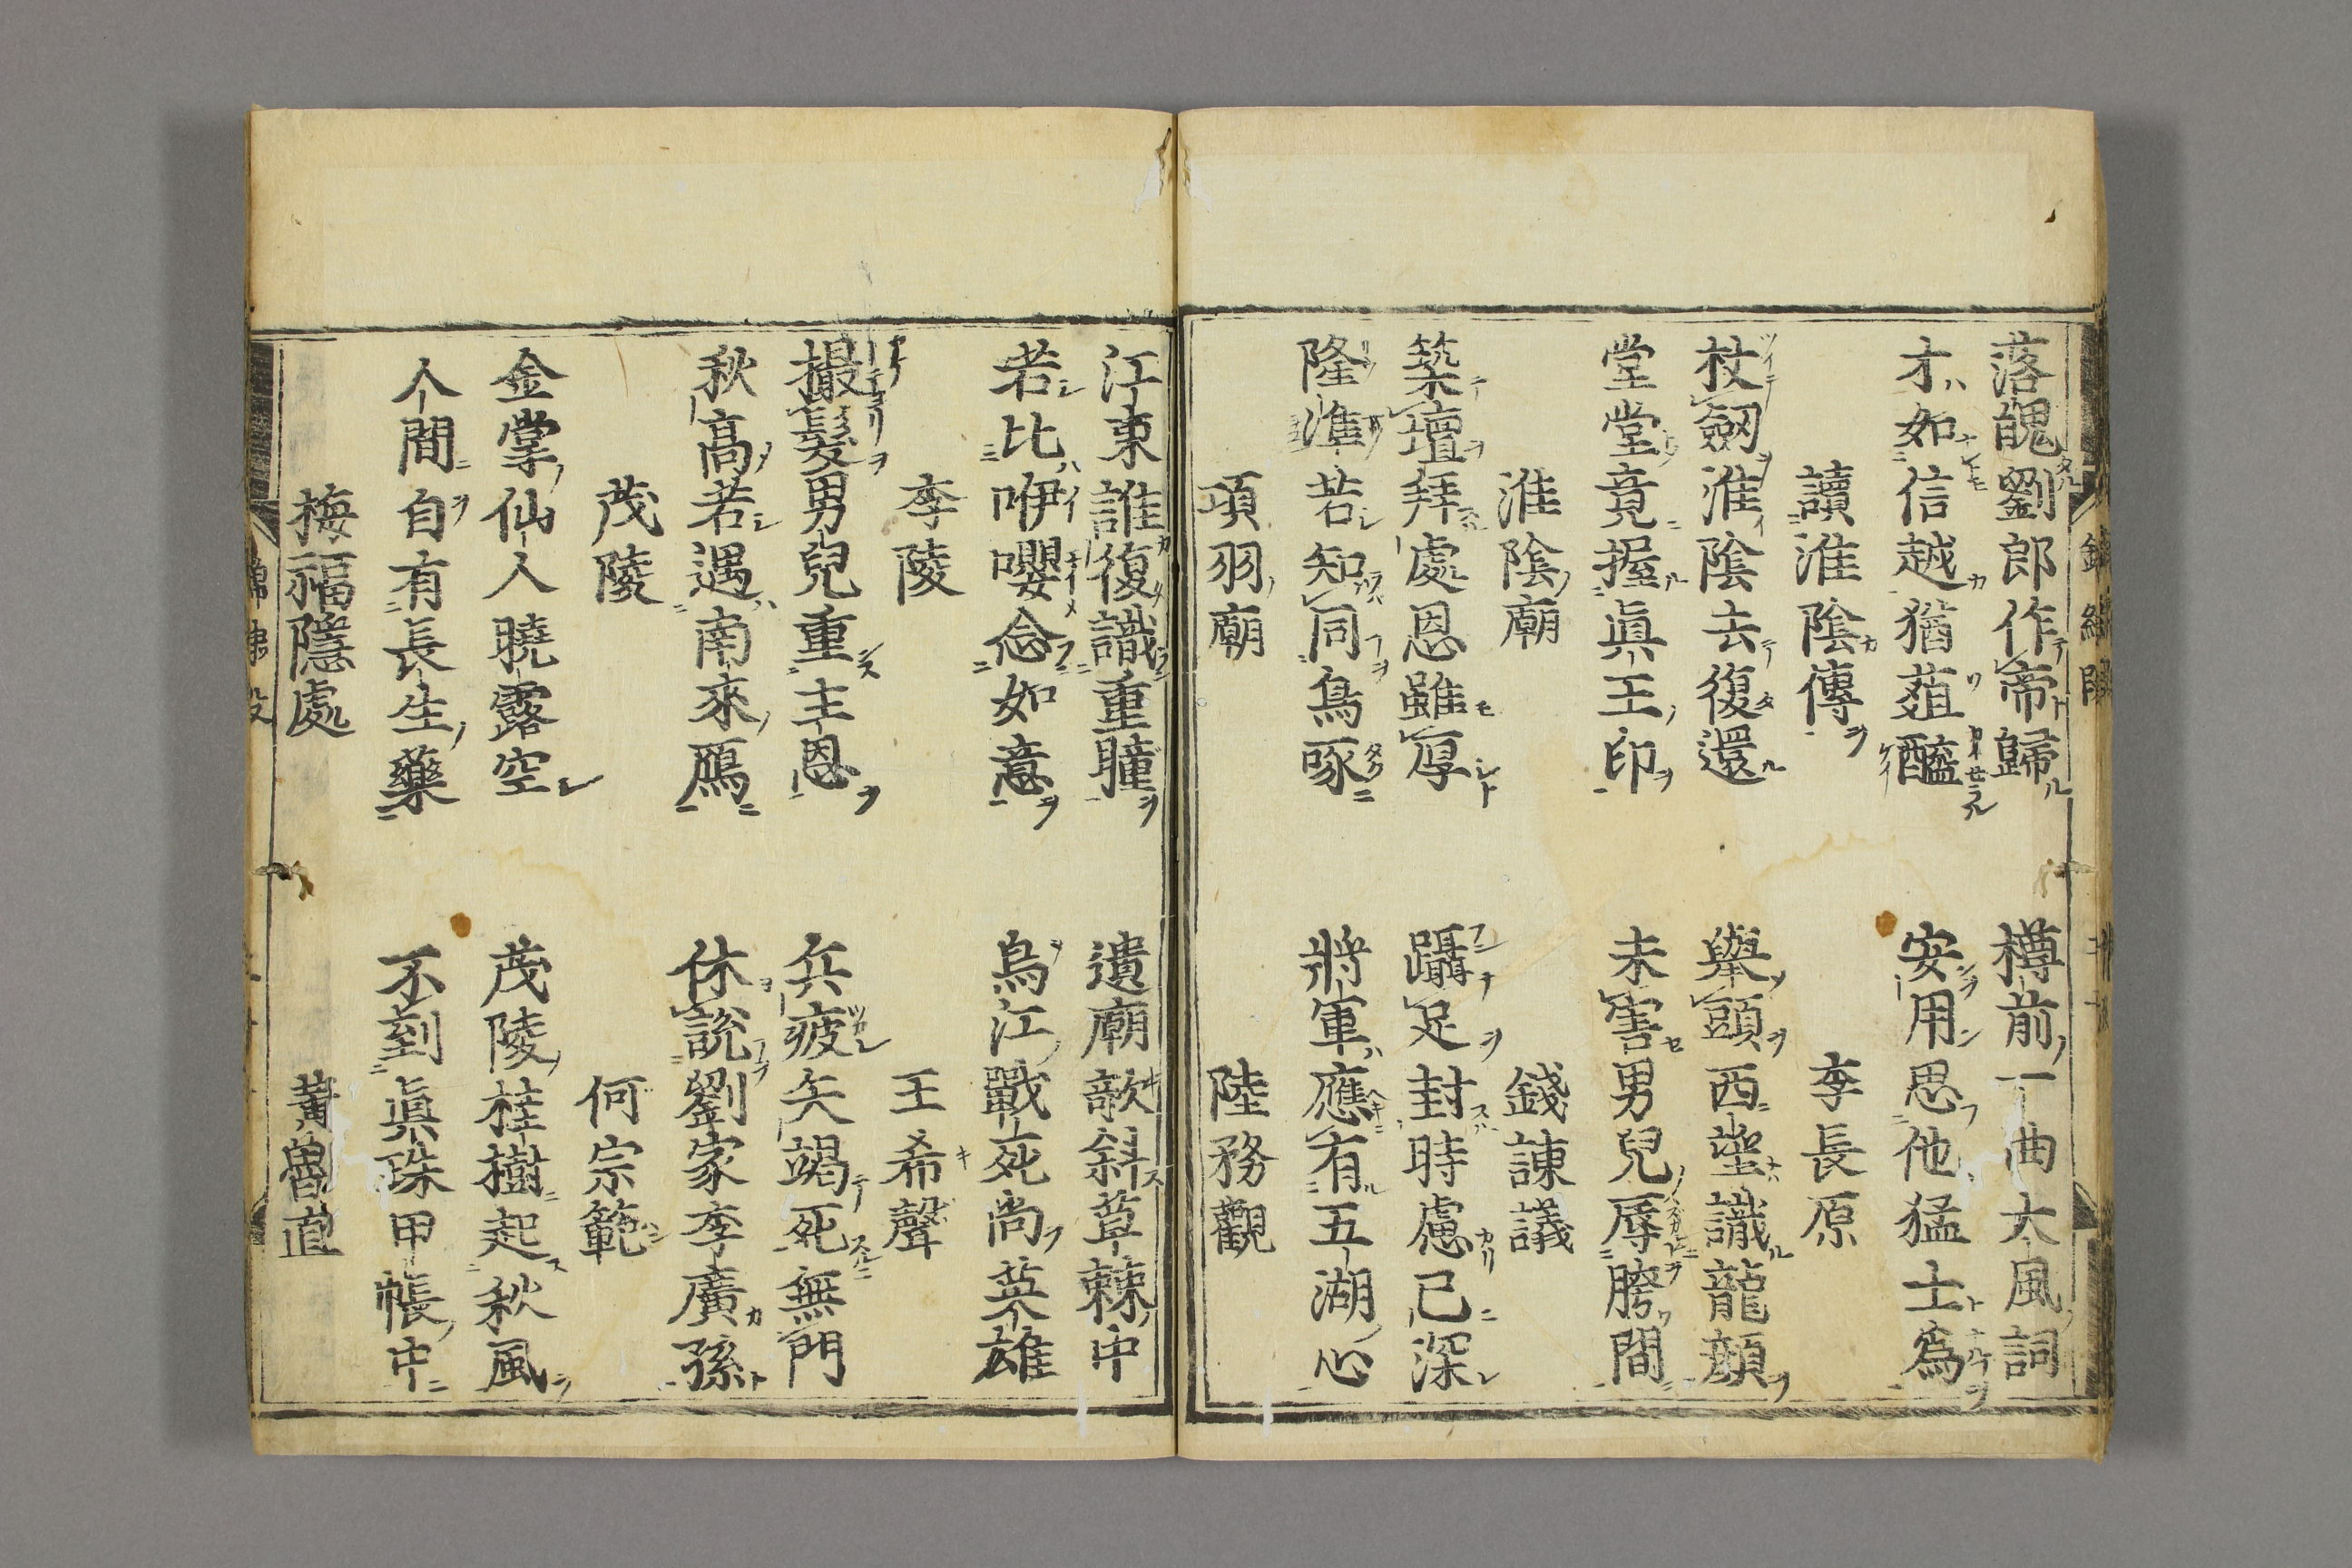 落魄劉郎作帝歸　樽前一曲大風詞
才如信越猶葅醢　安用思他猛士爲
讀淮陰傳　李長原
杖劔淮陰去復還　擧頭西望識龍顔
堂堂竟握眞王印　未害男兒辱胯間
淮陰廟　錢諫議
築壇拜處恩雖厚　躡足封時慮已深
隆準若知同鳥啄　將軍應有五湖心
項羽廟　陸務觀
江東誰復識重瞳　遺廟欹斜草棘中
若比咿嚶念如意　烏江戰死尚英雄
李陵　王希聲
撮髮男兒重主恩　兵疲矢竭死無門
秋高若遇南來鴈　休說劉家李廣孫
茂陵　何宗範
金掌仙人曉露空　茂陵桂樹起秋風
人間自有長生藥　不到眞珠甲帳中
梅福隱處　黃魯直